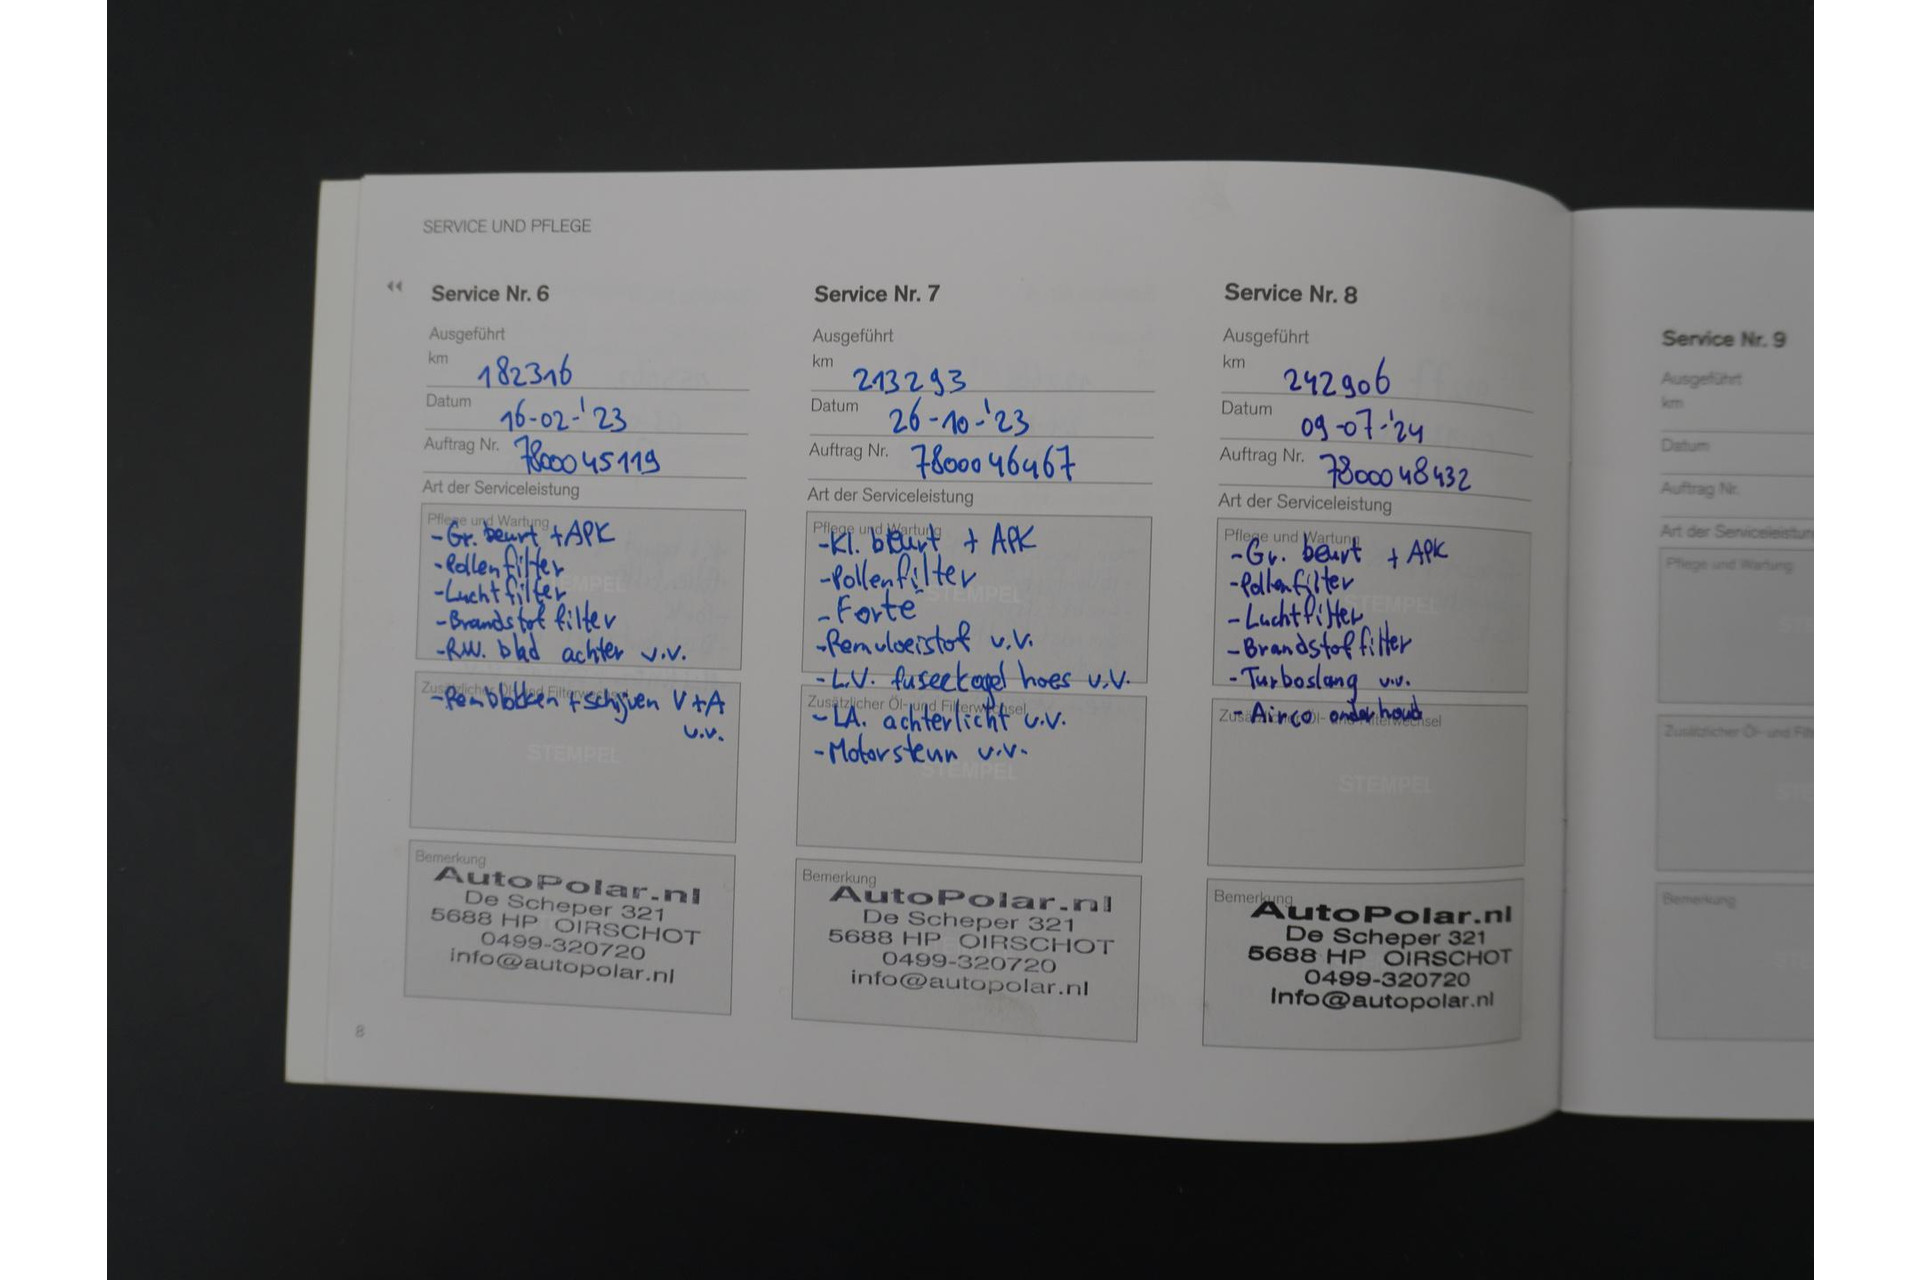 SERVICE UND PFLEGE
Service Nr. 6
Ausgeführt
km 182316
Datum 16-02-'23
Auftrag Nr. 7800045119
Art der Serviceleistung
Pflege und Wartung
-Gr. beurt + APK
-Pollenfilter
-Luchtfilter
-Brandstof filter
-R.W. blad achter v.v.
Zusätzlicher Öl- und Filterwechsel
-Remblokken + schijven V+A
v.v.
STEMPEL
Bemerkung
AutoPolar.nl
De Scheper 321
5688 HP OIRSCHOT
0499-320720
info@autopolar.nl
8
Service Nr. 7
Ausgeführt
km 213293
Datum 26-10-'23
Auftrag Nr. 7800046467
Art der Serviceleistung
Pflege und Wartung
-Kl. beurt + APK
-Pollenfilter
STEMPEL
-Forte
-Remvloeistof v.v.
-L.V. fuseekogel hoes v.v.
Zusätzlicher Öl- und Filterwechsel
-LA. achterlicht v.v.
-Motorsteun v.v.
STEMPEL
Bemerkung
AutoPolar.nl
De Scheper 321
5688 HP OIRSCHOT
0499-320720
info@autopolar.nl
Service Nr. 8
Ausgeführt
km 242906
Datum 09-07-'24
Auftrag Nr. 7800048432
Art der Serviceleistung
Pflege und Wartung
-Gr. beurt + APK
-Pollenfilter
STEMPEL
-Luchtfilter
-Brandstoffilter
-Turboslang v.v.
Zusätzlicher Öl- und Filterwechsel
-Airco onderhoud
STEMPEL
Bemerkung
AutoPolar.nl
De Scheper 321
5688 HP OIRSCHOT
0499-320720
info@autopolar.nl
Service Nr. 9
Ausgeführt
km
Datum
Auftrag Nr.
Art der Serviceleistun
Pflege und Wartung
Zusätzlicher Öl- und Filt
Bemerkung